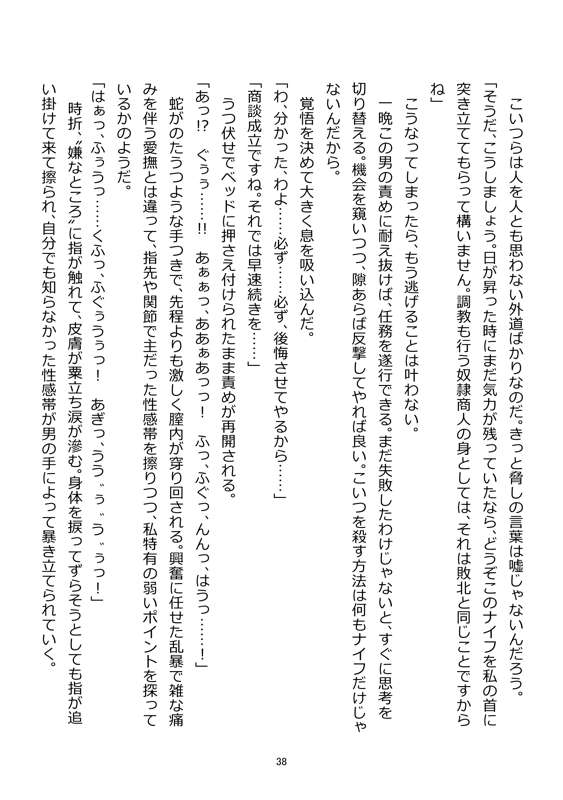 こいつらは人を人とも思わない外道ばかりなのだ。きっと脅しの言葉は嘘じゃないんだろう。
「そうだ、こうしましょう。日が昇った時にまだ気力が残っていたなら、どうぞこのナイフを私の首に
突き立ててもらって構いません。調教も行う奴隷商人の身としては、それは敗北と同じことですから
ね」
こうなってしまったら、もう逃げることは叶わない。
一晩この男の責めに耐え抜けば、任務を遂行できる。まだ失敗したわけじゃないと、すぐに思考を
切り替える。機会を窺いつつ、隙あらば反撃してやれば良い。こいつを殺す方法は何もナイフだけじゃ
ないんだから。
覚悟を決めて大きく息を吸い込んだ。
「わ、分かった、わよ……必ず……必ず、後悔させてやるから……」
「商談成立ですね。それでは早速続きを……」
うつ伏せでベッドに押さえ付けられたまま責めが再開される。
「あっ!?　ぐぅぅ……!!　あぁぁっ、ああぁあっっ！　ふっ、ふぐっ、んんっ、はうっ……！」
蛇がのたうつような手つきで、先程よりも激しく膣内が穿り回される。興奮に任せた乱暴で雑な痛
みを伴う愛撫とは違って、指先や関節で主だった性感帯を擦りつつ、私特有の弱いポイントを探って
いるかのようだ。
「はぁっ、ふぅうっ……くふっ、ふぐぅうぅっ！　あぎっ、うう゛ぅ゛う゛ぅっ！」
時折、〝嫌なところ〟に指が触れて、皮膚が粟立ち涙が滲む。身体を捩ってずらそうとしても指が追
い掛けて来て擦られ、自分でも知らなかった性感帯が男の手によって暴き立てられていく。
38